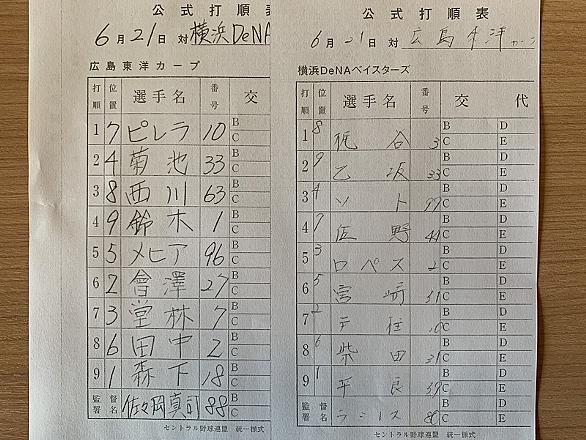 公式打順表
6月21日 対 横浜DeNA
広島東洋カープ
打順 位置 選手名 番号 交
1 7 ピレラ 10 B C
2 4 菊池 33 B C
3 8 西川 63 B C
4 9 鈴木 1 B C
5 5 メヒア 96 B C
6 2 會澤 27 B C
7 3 堂林 7 B C
8 6 田中 2 B C
9 1 森下 18 B C
監督署名 佐々岡真司 88 B C
セントラル野球連盟 統一様式
公式打順表
6月21日 対 広島東洋カープ
横浜DeNAベイスターズ
打順 位置 選手名 番号 交代
1 8 梶谷 3 B C D E
2 9 乙坂 33 B C D E
3 4 ソト 99 B C D E
4 7 佐野 44 B C D E
5 3 ロペス 2 B C D E
6 5 宮﨑 51 B C D E
7 2 戸柱 10 B C D E
8 6 柴田 31 B C D E
9 1 平良 59 B C D E
監督署名 ラミレス 80 B C D E
セントラル野球連盟 統一様式